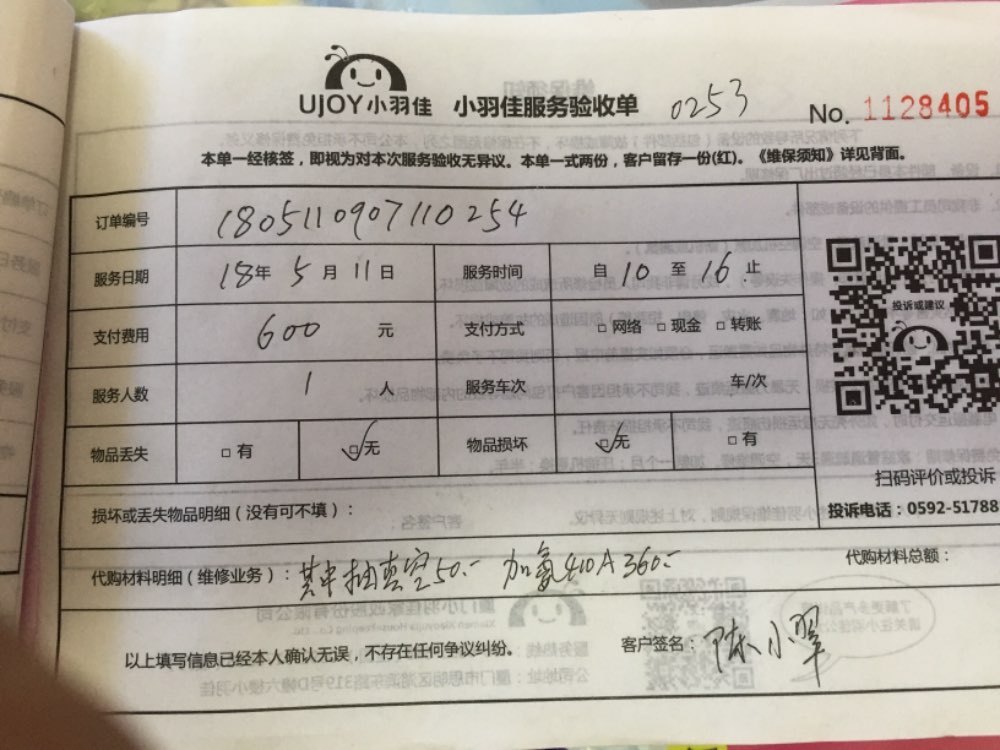 UJOY小羽佳 小羽佳服务验收单 0253 No. 1128405
本单一经核签，即视为对本次服务验收无异议。本单一式两份，客户留存一份(红)。《维保须知》详见背面。
订单编号 1805110907110254
服务日期 18年 5月 11日 服务时间 自 10 至 16 止
投诉或建议
支付费用 600 元 支付方式 □网络 □现金 □转账
服务人数 1 人 服务车次 车/次
物品丢失 □有 ☑无 物品损坏 ☑无 □有
扫码评价或投诉
损坏或丢失物品明细（没有可不填）：
投诉电话：0592-51788
代购材料明细（维修业务）：其中抽真空50.- 加氟410A 360.- 代购材料总额：
以上填写信息已经本人确认无误，不存在任何争议纠纷。 客户签名：陈小翠